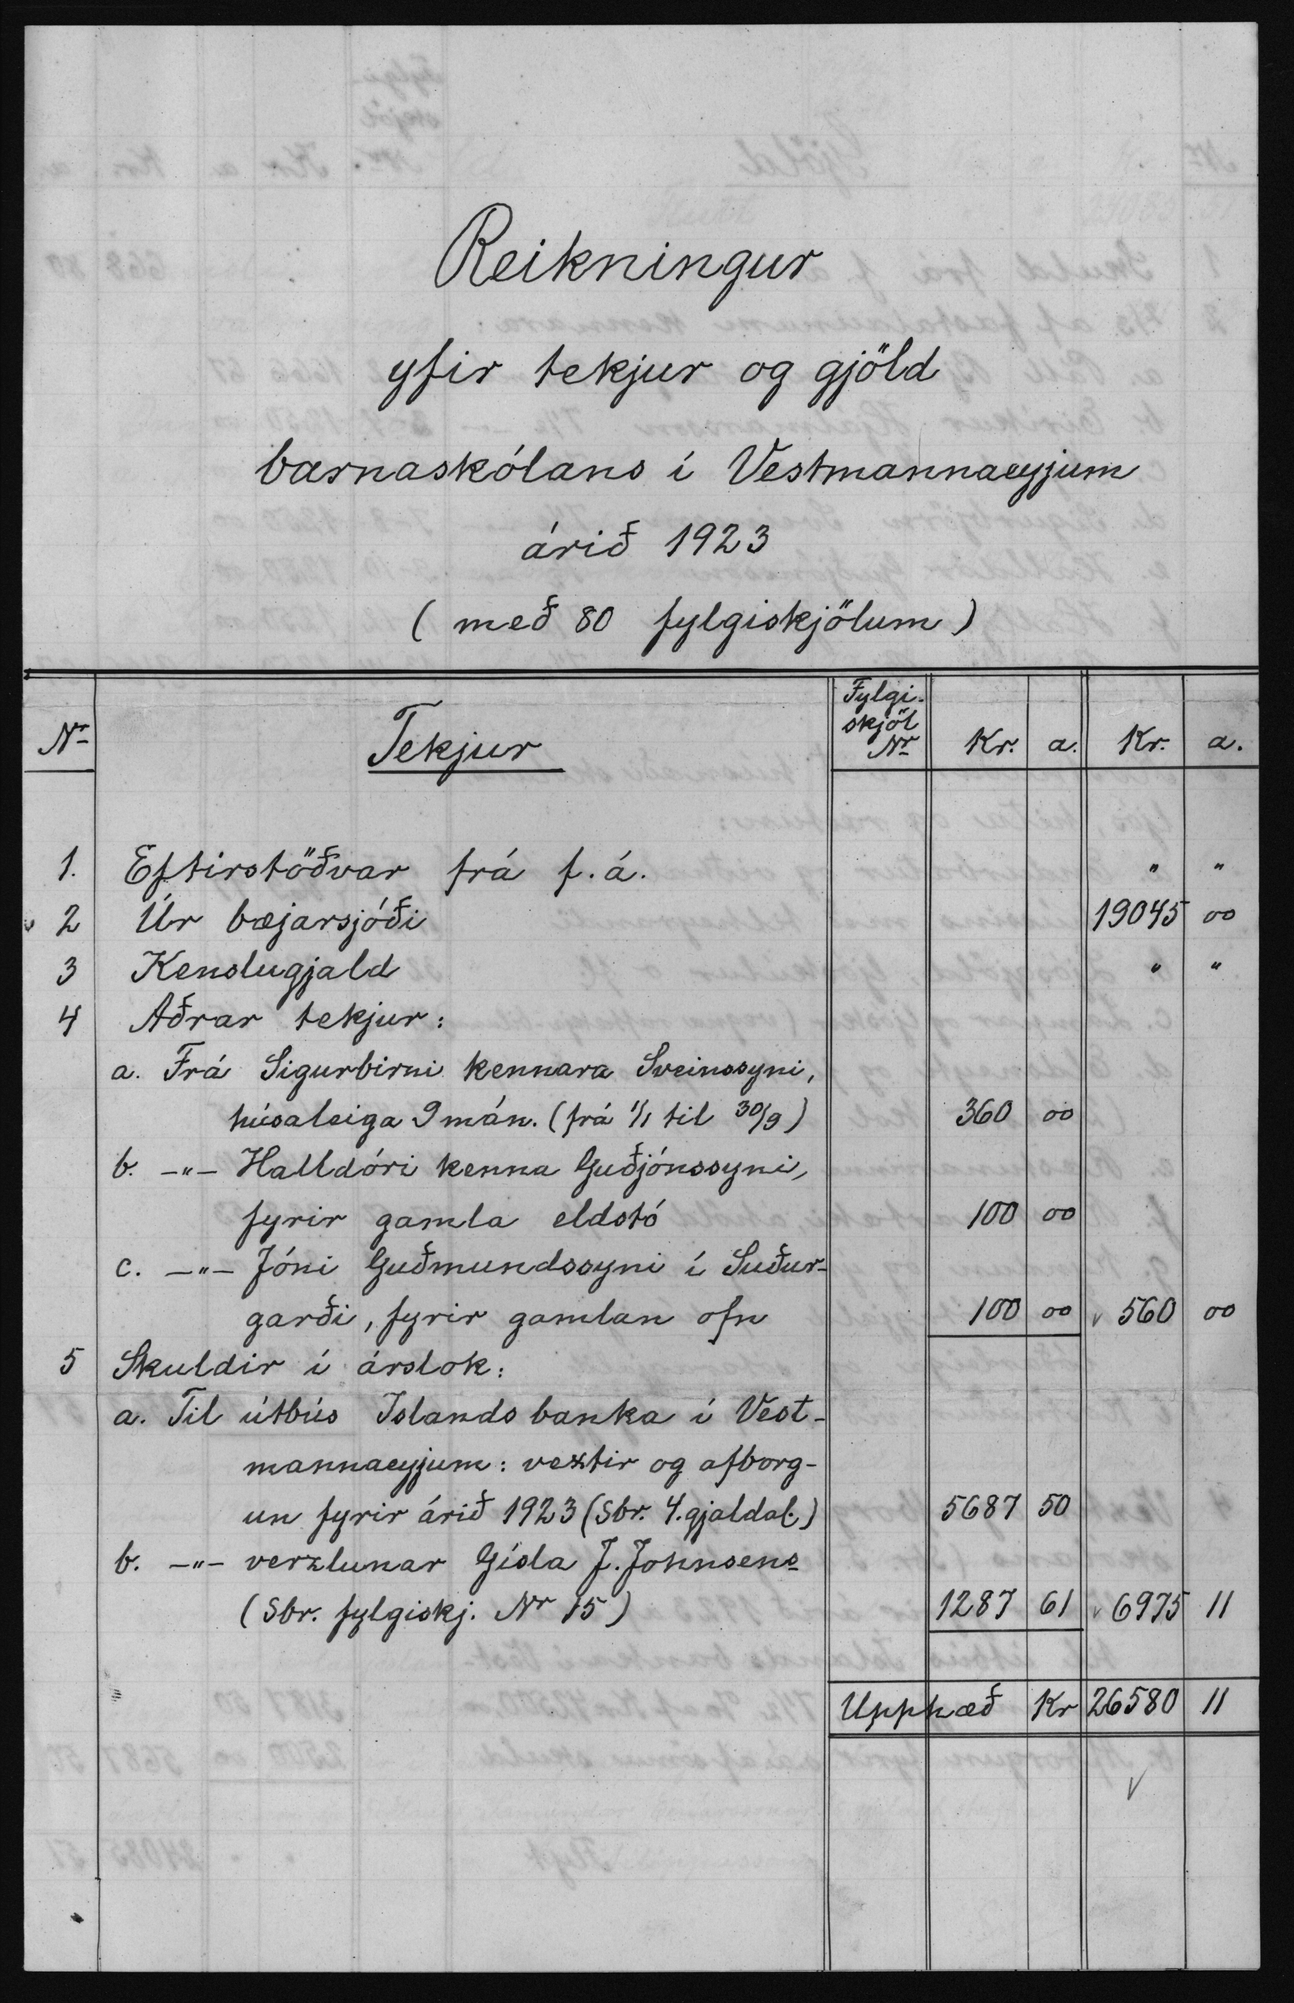 Reikningur
yfir tekjur og gjöld
barnaskólans í Vestmannaeyjum
árið 1923
(með 80 fylgiskjölum)
Nr Tekjur Fylgi-skjöl Nr Kr. a. Kr. a.
1. Eftirstöðvar frá f. á. " "
2 Úr bæjarsjóði 19045 00
3 Kenslugjald " "
4 Aðrar tekjur:
a. Frá Sigurbirni kennara Sveinssyni,
húsaleiga 9 mán. (frá 1/1 til 30/9) 360 00
b. -"- Halldóri kenna Guðjónssyni,
fyrir gamla eldstó 100 00
c. -"- Jóni Guðmundssyni í Suður-
garði, fyrir gamlan ofn 100 00 560 00
5 Skuldir í árslok:
a. Til útbús Islands banka í Vest-
mannaeyjum: vextir og afborg-
un fyrir árið 1923 (Sbr. 4. gjaldal.) 5687 50
b. -"- verzlunar Gísla J. Johnsens
(Sbr. fylgiskj. Nr 15) 1287 61 6975 11
Upphæð Kr 26580 11